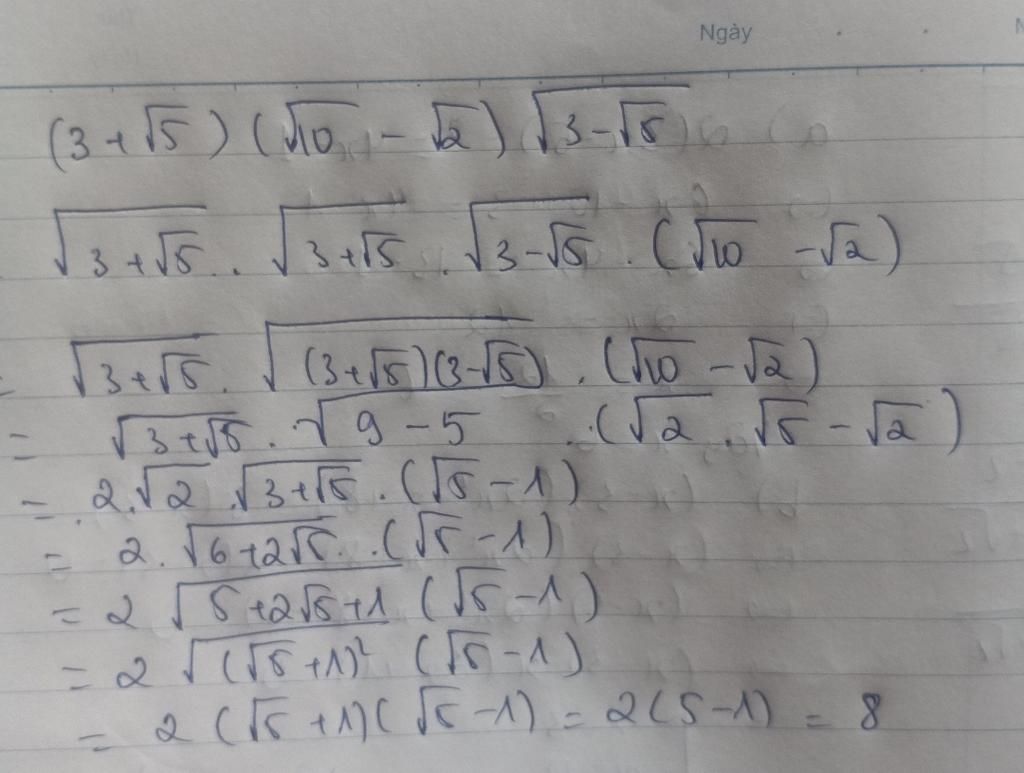 Ngày
(3 + √5) (√10 - √2) √(3 - √5)
√(3 + √5) . √(3 + √5) . √(3 - √5) . (√10 - √2)
= √(3 + √5) . √((3 + √5)(3 - √5)) . (√10 - √2)
= √(3 + √5) . √(9 - 5) . (√2 . √5 - √2)
= 2 . √2 . √(3 + √5) . (√5 - 1)
= 2 . √(6 + 2√5) . (√5 - 1)
= 2 √(5 + 2√5 + 1) (√5 - 1)
= 2 √((√5 + 1)²) (√5 - 1)
= 2 (√5 + 1) (√5 - 1) = 2 (5 - 1) = 8